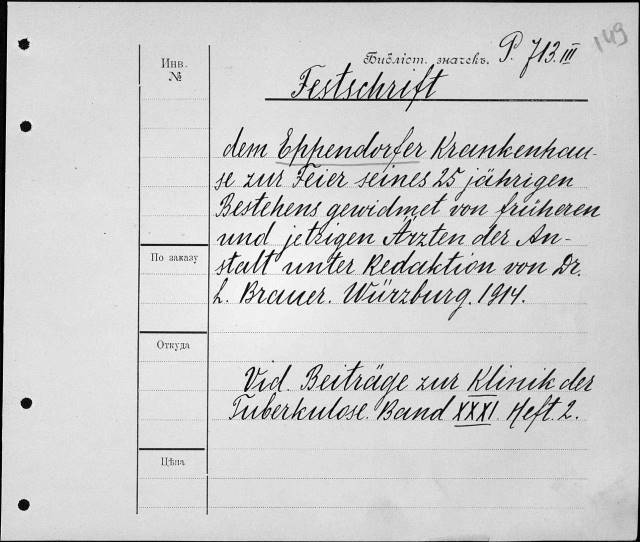 149
Инв.
№
Библіот. значекъ. P. 713.III
Festschrift
dem Eppendorfer Krankenhau-
se zur Feier seines 25 jährigen
Bestehens gewidmet von früheren
und jetzigen Ärzten der An-
stalt unter Redaktion von Dr.
L. Brauer. Würzburg. 1914.
По заказу
Откуда
Vid. Beiträge zur Klinik der
Tuberkulose. Band XXXI. Heft. 2.
Цѣна